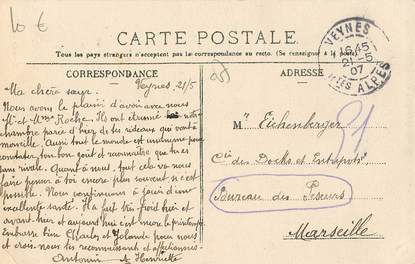 10 €
CARTE POSTALE
Tous les pays étrangers n'acceptent pas la correspondance au recto. (Se renseigner à la poste).
VEYNES
16 45
21 -5
07
HTES ALPES
CORRESPONDANCE
Veynes, 21/5
(05)
Ma chère sœur.
Nous avons le plaisir d'avoir avec nous
Mr et Mme Roche. Ils ont étrenné notre
chambre parée d'hier de ses rideaux qui vont à
merveille. Aussi tout le monde est unanime pour
ton bon goût et reconnaître que tu es
sans rivale. Quant à nous, tout cela va nous
faire penser à toi encore plus souvent si c'est
possible. Nous continuons à jouir d'une
excellente santé. Il a fait très froid hier et
avant-hier et aujourd'hui c'est encore le printemps.
Embrasse bien Charly et Yolande pour nous
et crois-nous tes reconnaissants et affectionnés.
Antonin & Henriette
ADRESSE
Mr Eichenberger
Cie des Docks et Entrepôts
Bureau des Peseurs
Marseille
51